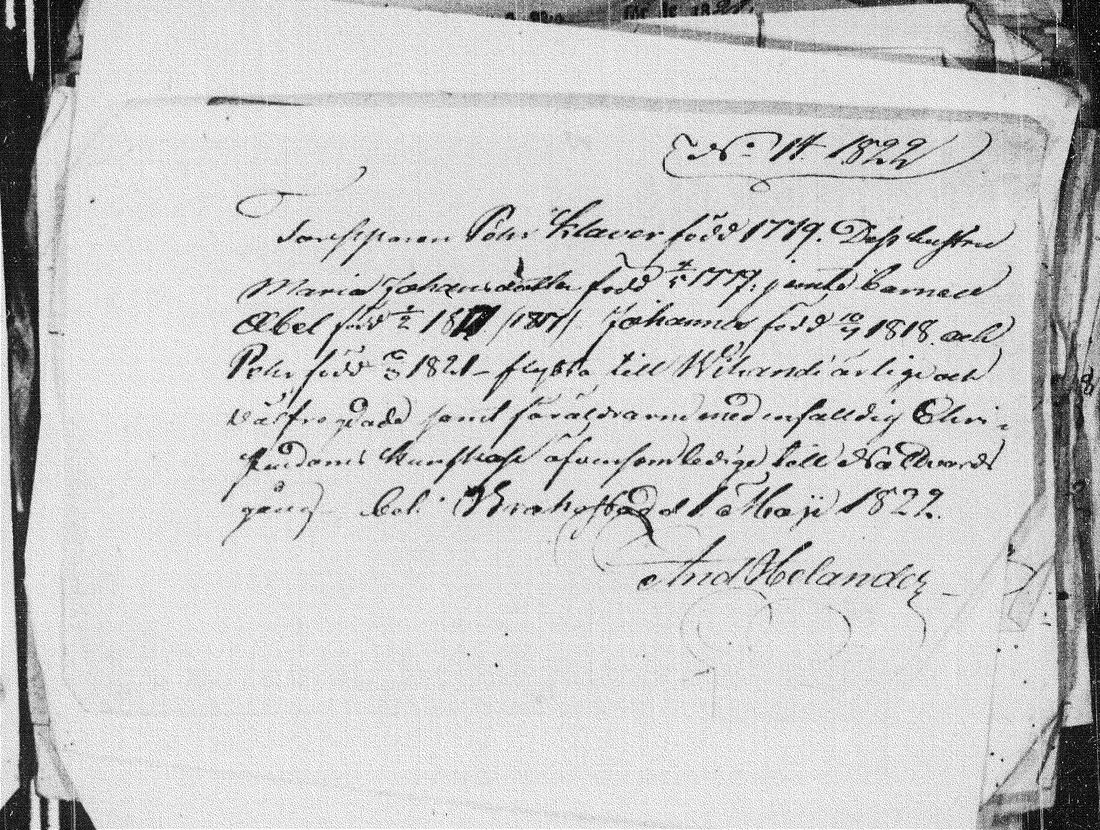 för år 1821.
No. 14. 1822
Torpparen Pehr Klaver född 1779. Dess hustru
Maria Johansdotter född 4/5 1779; jemte barnen
Abel född 1/2 1817 /1817/. Johannes född 10/7 1818. och
Pehr född 1821 – flytta till Wihandi ärlige och
välfrejdade samt föräldrarne med enfalldig Chri-
stendoms Kunskap äfvensom ledige till Nattvards
gång – bet. Brahestad d 1 Maji 1822.
And Helander